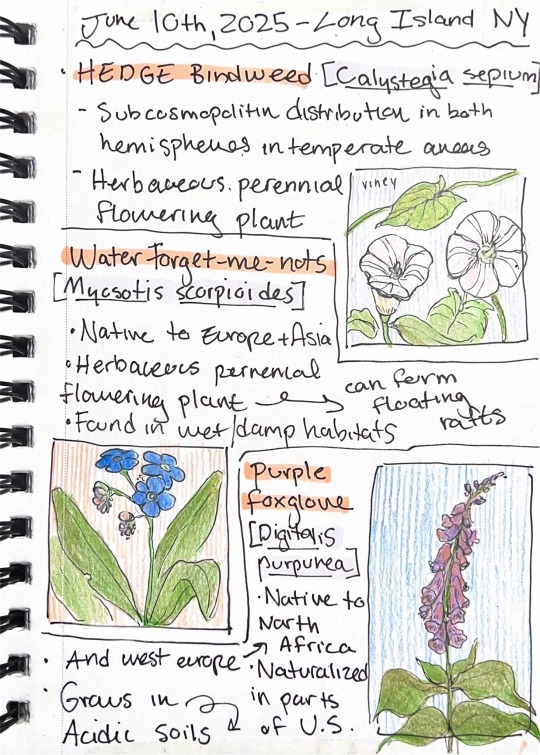 June 10th, 2025 - Long Island NY
· HEDGE Bindweed [Calystegia sepium]
- Subcosmopolitin distribution in both
hemispheres in temperate areas
- Herbaceous perennial
flowering plant
viney
Water forget-me-nots
[Myosotis scorpioides]
· Native to Europe + Asia
· Herbaceous perennial
flowering plant → can form
floating
rafts
· Found in wet/damp habitats
Purple
foxglove
[Digitalis
purpurea]
· Native to
North
Africa
· And west europe
· Naturalized
in parts
of U.S.
· Grows in
Acidic soils